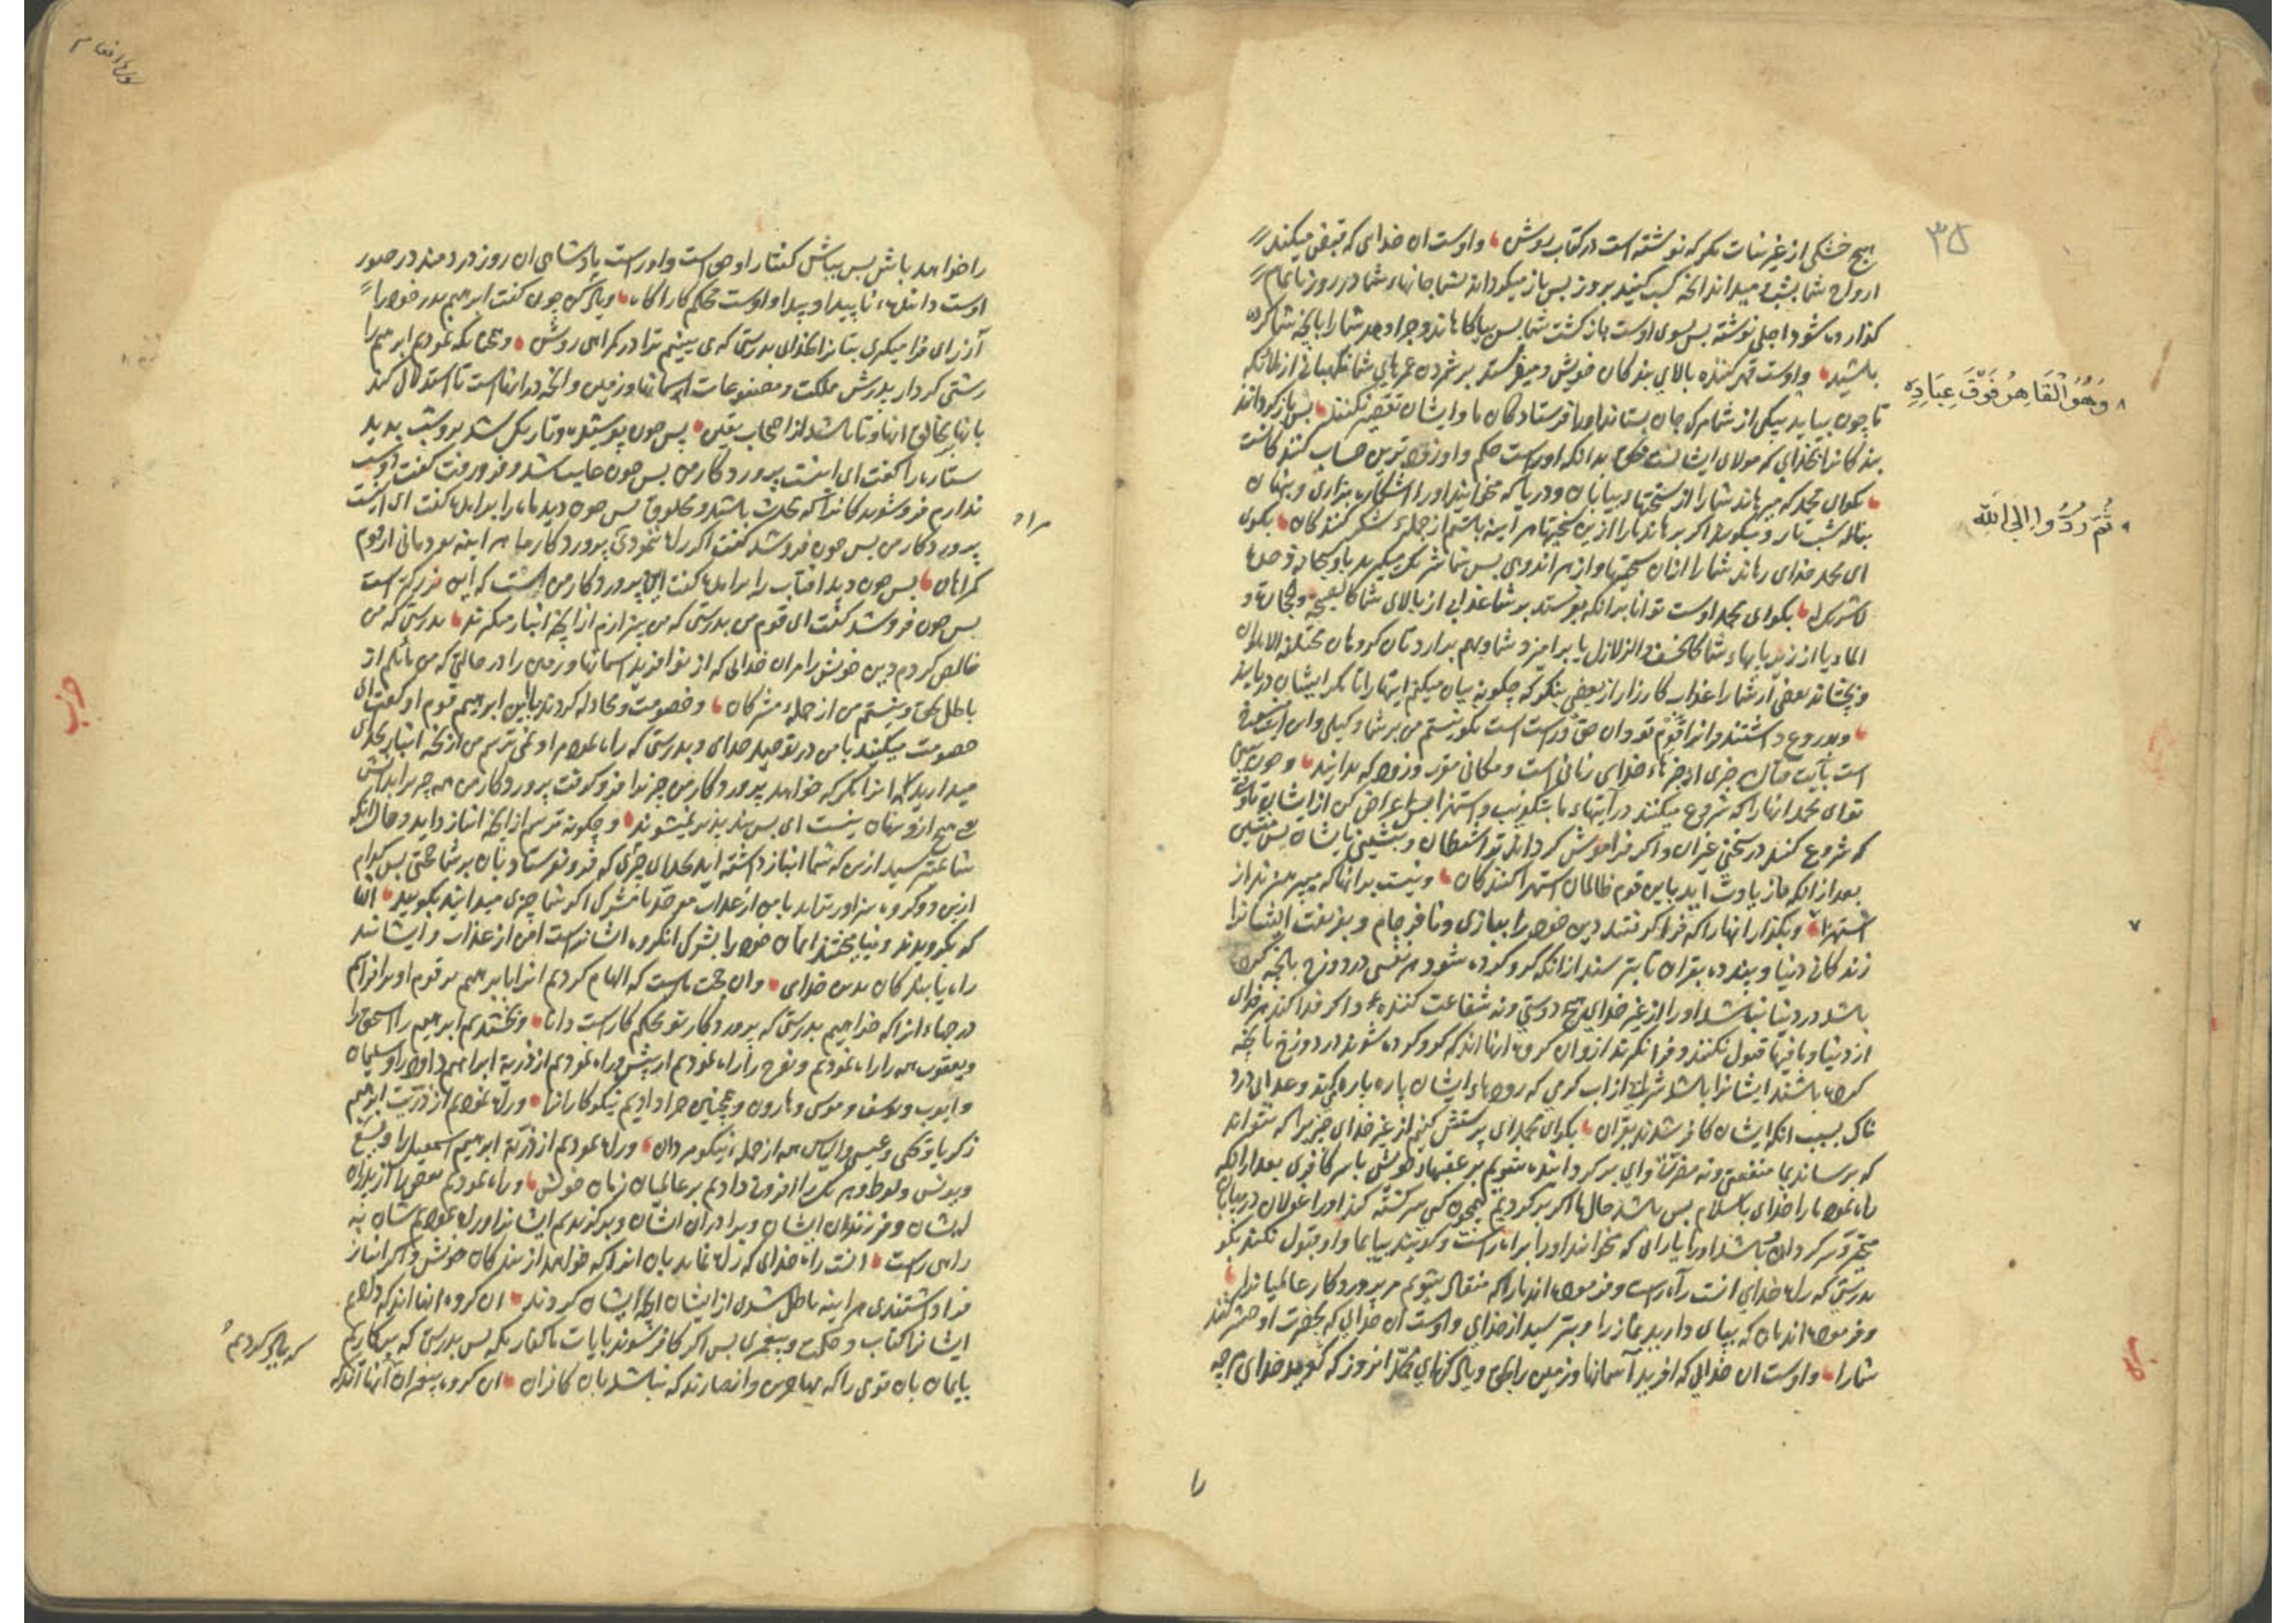 ۳۵
هیچ خشکی از غیر نبات مکر که نوشته است در کتاب روشن واوست ان خدای که قبض میکند
ارواح شما بشب و میداند انچه کسب کنید بروز پس باز میکرداند بشما جانهاء شما در روز تا تمام
کذارده شود اجلی نوشته پس بسوی اوست بازکشت شما پس بیاکاهاند وجزا دهد شما را بانچه شما کرده
باشید واوست قهر کننده بالای بندکان خویش ومیفرستد بر شمردن عمرهای شما نکهبانی از ملائکه
وَهُوَ الْقَاهِرُ فَوْقَ عِبَادِهِ
تا چون بیاید بیکی از شما مرک جان بستانند اورا فرستادکان ما وایشان تقصیر نکنند پس بازکردانند
بندکانرا بخدای که مولای ایشانست بدانکه اوراست حکم واو زودترین حساب کنندکانست
ثُمَّ رُدُّوا اِلَی اللّٰهِ
بکو ای محمد که میرهاند شما را از سختیهاء بیابان ودریا که میخوانید اورا اشکاره بزاری وپنهان
بناله شب تار ومیکویند اکر برهاند ما را ازین سختیها هر اینه باشیم از جملهٔ شکر کنندکان بکوی
ای محمد خدای رهاند شما را ازان سختیها واز هر اندوهی پس شما شریک میکیرید باو سبحانه وحده
لاشریک له بکو ای محمد اوست توانا برانکه بفرستد بر شما عذابی از بالای شما کالصیحه والحجاره و
الماء ویا از زیر پایهاء شما کالخسف والزلازل یا برامیزد شما را بهم برارد تان کروهان مختلفه الاهواء
وبچشاند بعضی از شما را عذاب کارزار از بعضی بنکر که چکونه بیان میکنم ایتها را تا مکر ایشان دریابند
وبدروغ داشتند وانرا قوم تو وان حق وراست است بکو نیستم من بر شما وکیلی واین منسوخ
است بآیت قتال هر خبری از خبرهاء خدای را زمانی است ومکانی مقرر وزود که بدانند وچون ببینی
تو ای محمد انها را که شروع میکنند در آیتهاء ما بتکذیب واستهزا پس اعراض کن از ایشان تا وقتی
که شروع کنند در سخنی غیر ان واکر فراموش کرداند ترا شیطان وبنشینی با ایشان پس منشین
بعد از انکه باز یادت اید با این قوم ظالمان استهزا کنندکان ونیست برانها که میپرهیزند از
استهزا وبکذار انها را که فرا کرفتند دین خود را ببازی ونافرجام وبفریفت ایشانرا
۷
زندکانی دنیا وپند ده بقران تا بترسند از انکه کرو کرده شود هر نفسی در دوزخ بانچه کرده
باشد در دنیا نباشد اورا از غیر خدای هیچ دوستی ونه شفاعت کنندهٔ واکر فدا کند هر فدای
از دنیا وما فیها قبول نکنند وفرا نکیرند ازو ان کروه انها اند که کرو کرده شوند در دوزخ بانچه
کرده باشند ایشانرا باشد شرابی از اب کرمی که رودهاء ایشان پاره پاره کند وعذابی درد
ناک بسبب انکه ایشان کافر شدند بقران بکو ای محمد ای پرستش کنیم از غیر خدای چیزیرا که نتواند
که برساند بما منفعتی ونه مضرتی وای برکردانیده شویم بر عقبهاء خویش باسر کافری بعد از انکه
راه نمود ما را خدای باسلام پس باشد حال ما اکر برکردیم همچون کسی سرکشته کند اورا غولان در بیابان
متحیر وسرکردان باشد اورا یارانی که میخوانند اورا براه راست وکویند بیا بما واو قبول نکند بکو
بدرستی که راه خدای انست راه راست وفرموده اند ما را که منقاد شویم مر پروردکار عالمیانرا
وفرموده اند مان که بپای دارید نماز را وبترسید از خدای واوست ان خدای که بحضرت او حشر کنند
شمارا واوست ان خدای که افرید آسمانها وزمین را بحق ویاد کن ای محمد انروز که کوید خدای هر چه
را
را خواهد باش پس بباش کفتار او حق است واوراست پادشاهی ان روز در دمند در صور
اوست دانندهٔ ناپیدا وپیدا واوست محکم کار اکاه ویاد کن چون کفت ابرهیم پدر خود را
آزر ای فرا میکیری بتانرا بخدای بدرستی که می بینم ترا در کمراهی روشن وهمچنانکه نمودیم ابرهیم را
زشتی کردار پدرش ملکت ومصنوعات اسمانها وزمین وانچه درانهاست تا استدلال کند
بانها بخالق انها وتا باشد از اصحاب یقین پس چون پوشیده وتاریک شد برو شب بدید
ستاره را کفت ای اینست پروردکار من پس چون غایب شد وفرو رفت کفت دوست
ندارم فروشوندکانرا که محدث باشد ومخلوق پس چون دید ماه را برامده کفت ای اینست
پروردکار من پس چون فروشد کفت اکر راه ننمودی پروردکار ما هر اینه بودمانی از قوم
کمراهان پس چون دید افتاب را برامده کفت این پروردکار من است که این بزرکتر است
پس چون فروشد کفت ای قوم من بدرستی که من بیزارم از انچه انباز میکیرند بدرستی که من
خالص کردم دین خویش را مر ان خدایی که از نو افرید اسمانها وزمین را در حالتی که من مایلم از
باطل بحق ونیستم من از جملهٔ مشرکان وخصومت ومجادله کردند با ابرهیم قوم او کفت ای
خصومت میکنید با من در توحید خدای وبدرستی که راه نمود مرا ونمی ترسم من از انچه انباز بخدای
میدارید الا انرا مکر که خواهد پروردکار من چیزیرا فرو کرفت پروردکار من همه چیز را بدانش
هیچ ازو پنهان نیست ای پس پند پذیر نمیشوند وچکونه ترسم از انچه انباز دارید وحال انکه
شما نمیترسید ازین که شما انباز داشته اید بخدای چیزی که فرو نفرستاد بان بر شما حجتی پس کدام
ازین دو کروه سزاوارترند بامن از عذاب موحد یا مشرک اکر شما چیزی میدانید بکویید انها
که بکرویدند ونیامیختند ایمان خود را بشرک انکروه ایشانراست امن از عذاب وایشانند
راه یابندکان بدین خدای وان حجت ماست که الهام کردیم انرا بابرهیم بر قوم او برافرازیم
درجهاء انرا که خواهیم بدرستی که پروردکار تو محکم کار است دانا وبخشیدیم ابرهیم را اسحق را
ویعقوب همه را راه نمودیم ونوح را راه نمودیم از پیش وراه نمودیم از ذریة ابراهیم داود را وسلیمان
وایوب ویوسف وموسی وهارون وهمچنین جزا دادیم نیکوکارانرا وراه نمودیم از ذریت ابرهیم
زکریا ویحیی وعیسی والیاس همه از جمله نیکو مردان وراه نمودیم از ذریة ابرهیم اسمعیل را والیسع
ویونس ولوط وهر یکی را افزونی دادیم بر عالمیان زمان خویش وراه نمودیم بعضی را از پدران
ایشان وفرزندان ایشان وبرادران ایشان وبرکزیدیم ایشانرا وراه نمودیم شان به
راهی راست انست راه خدای که راه نماید بان انرا که خواهد از بندکان خویش واکر انباز
فرا داشتندی هر اینه باطل شدی از ایشان انچه ایشان کردند ان کروه انها اند که دادیم
ایشانرا کتاب وحکمت وپیغمبری پس اکر کافر شوند بایات ما کفار مکه پس بدرستی که برکاریم
بایمان بان قومی را که مهاجرین وانصارند که نباشد بان کافران ان کروه پیغمبران آنها آنند که